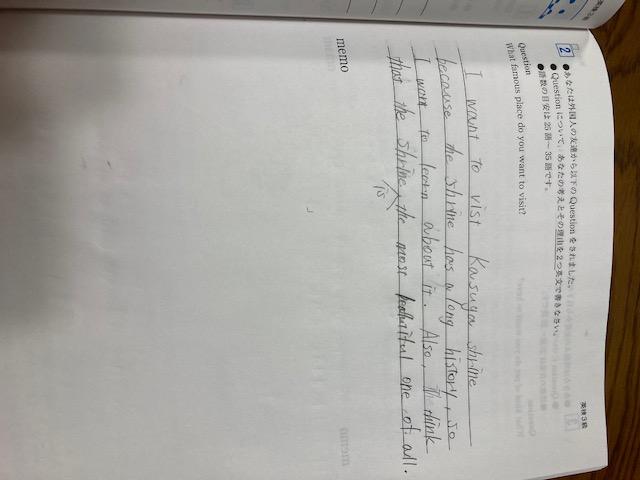 英検3級
2
●あなたは外国人の友達から以下の Question をされました。
●Question について、あなたの考えとその理由を2つ英文で書きなさい。
●語数の目安は 25 語~ 35 語です。
Question
What famous place do you want to visit?
I want to vist Kasuga shrine
because the shrine has a long history, so
I want to learn about it. Also, I think
that the shrine is the most beautiful one of all.
memo